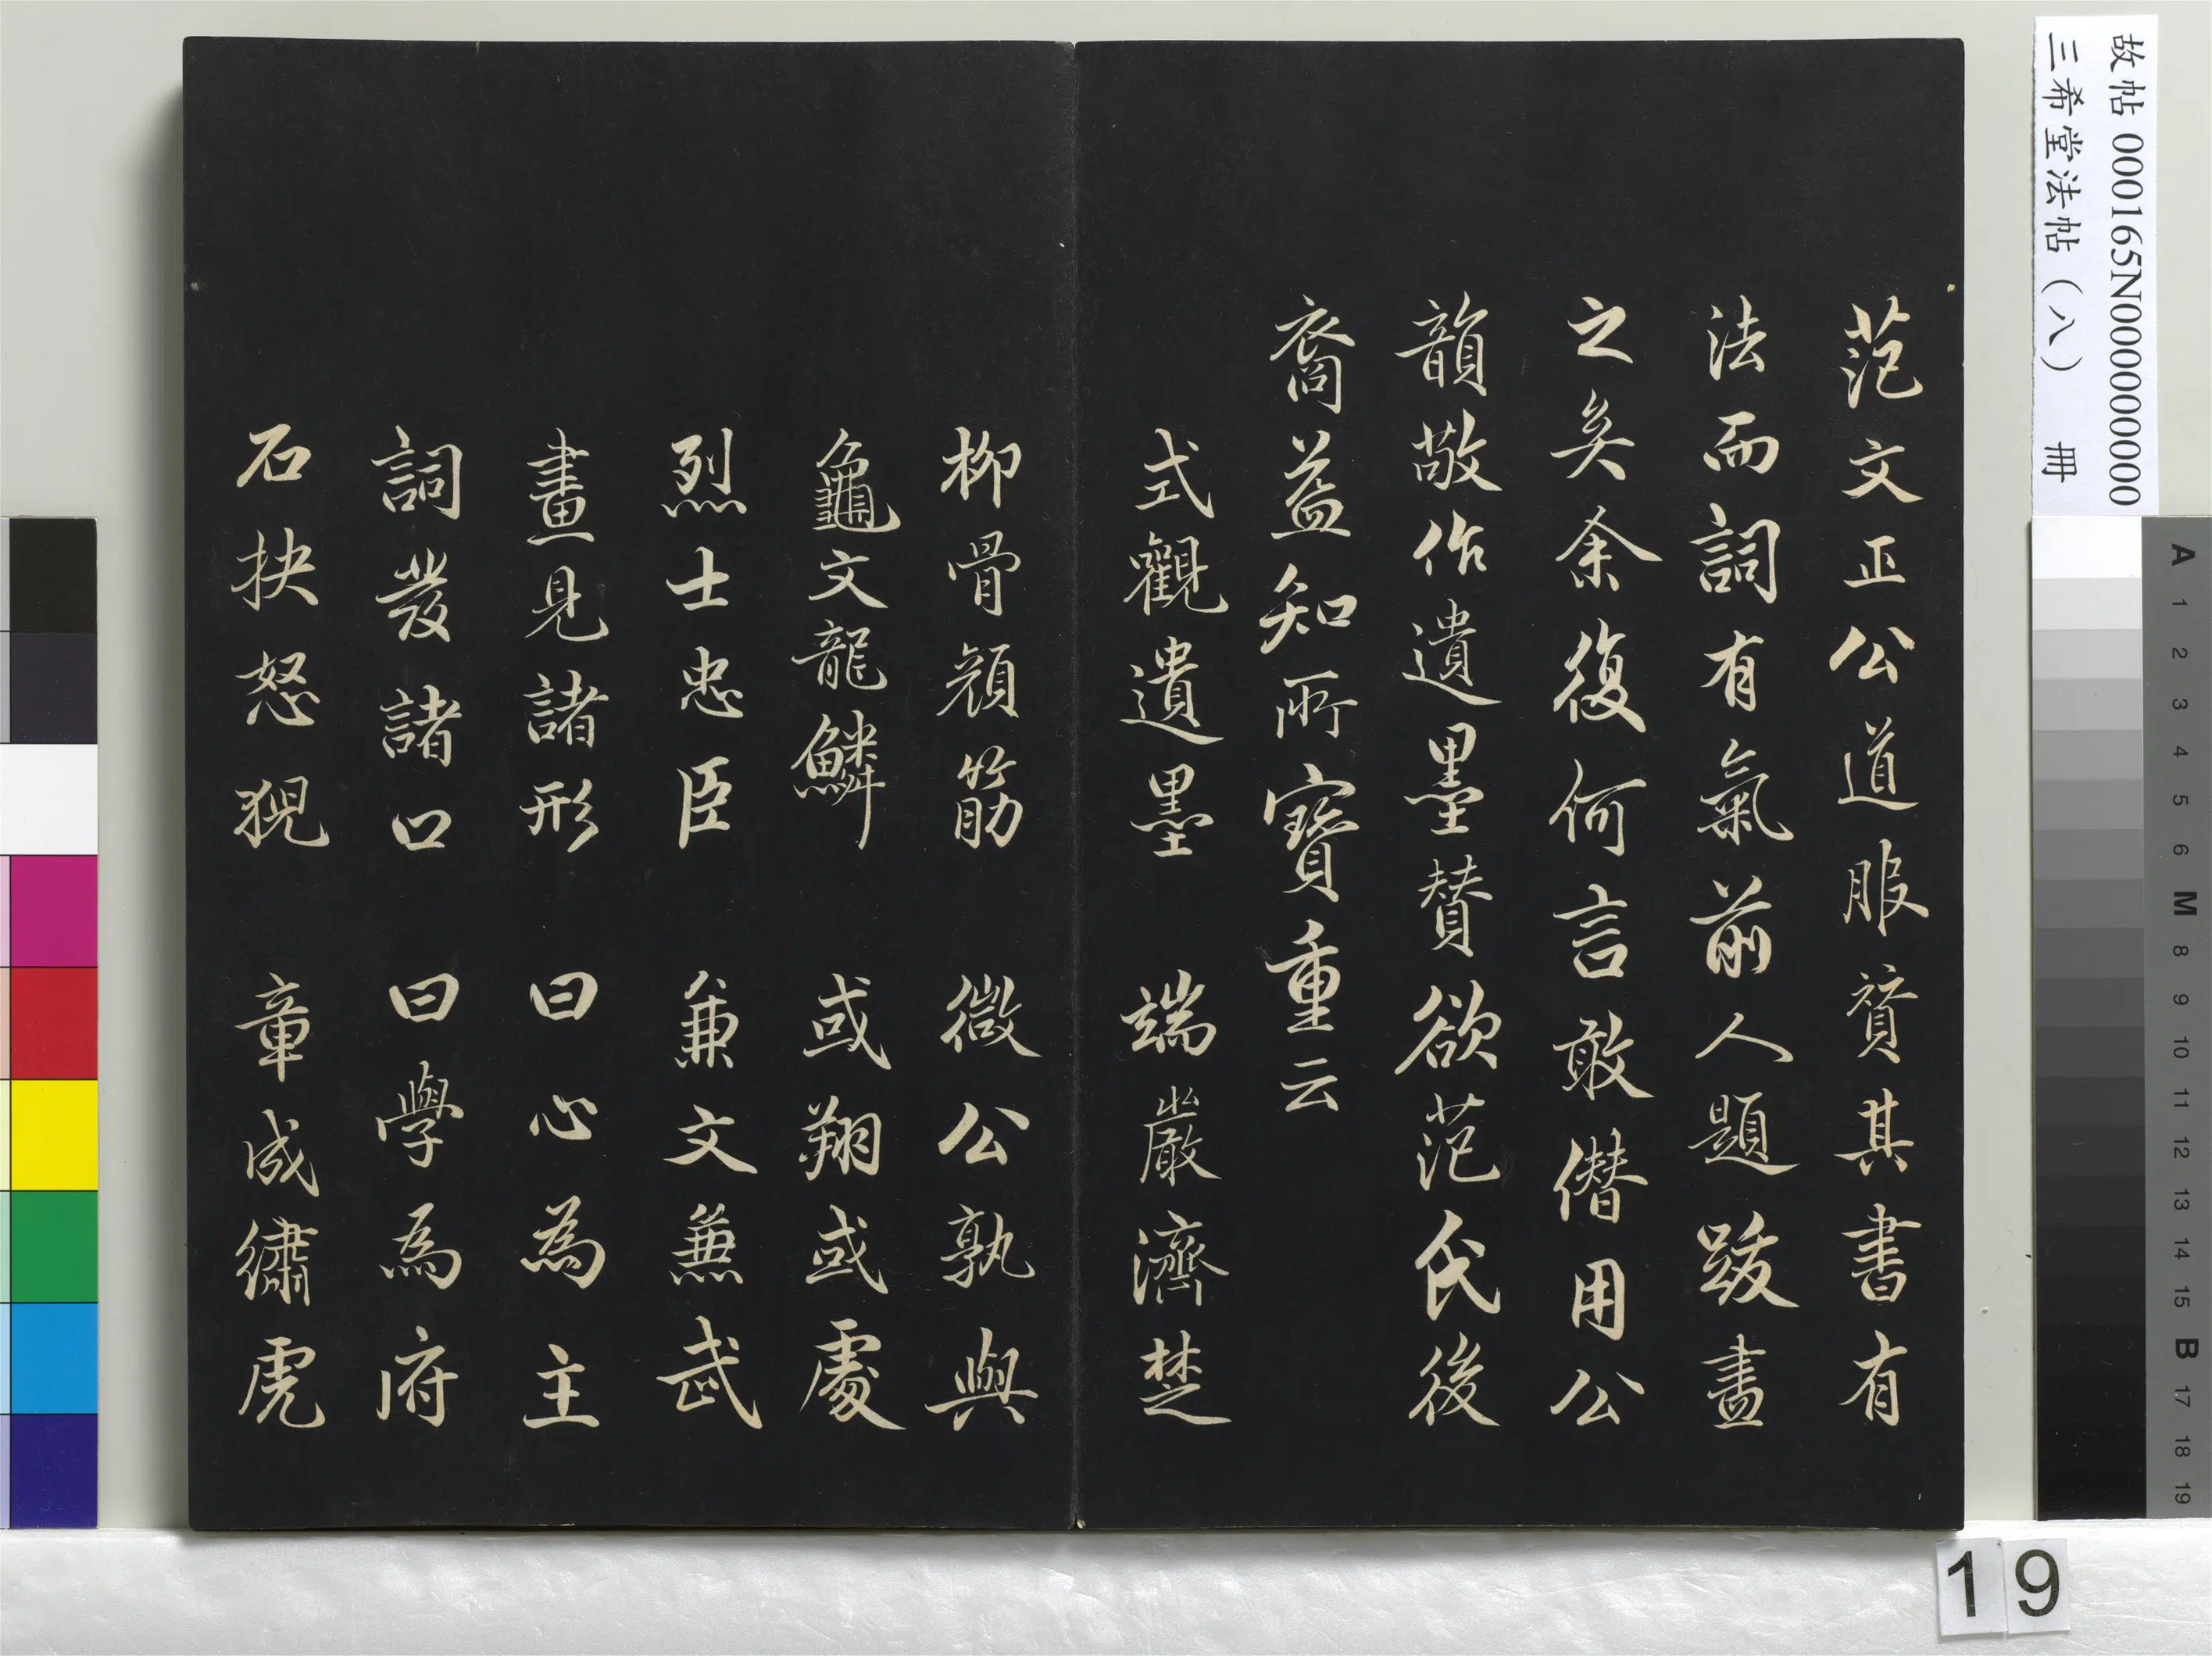 故帖 000165N000000000
三希堂法帖(八) 冊
范文正公道服贊其書有
法而詞有氣前人題跋盡
之矣余復何言敢僣用公
韻敬作遺墨贊欲范氏後
裔益知所寶重云
式觀遺墨 端嚴濟楚
柳骨顏筋 微公孰與
龜文龍鱗 或翔或處
烈士忠臣 兼文兼武
畫見諸形 曰心為主
詞發諸口 曰學為府
石抉怒猊 章成繡虎
19
A
1
2
3
4
5
6
M
8
9
10
11
12
13
14
15
B
17
18
19